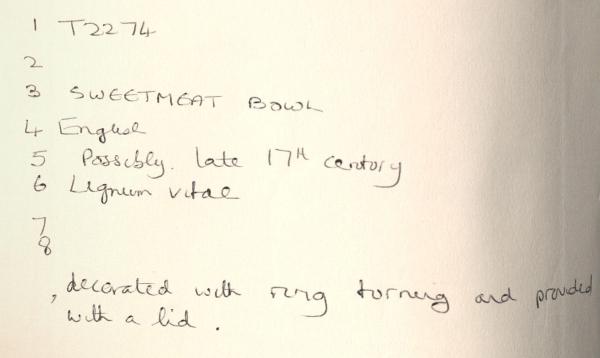 1 T2274
2
3 SWEETMEAT BOWL
4 English
5 Possibly. late 17th century
6 Lignum vitae
7
8
, decorated with ring turning and provided
with a lid.